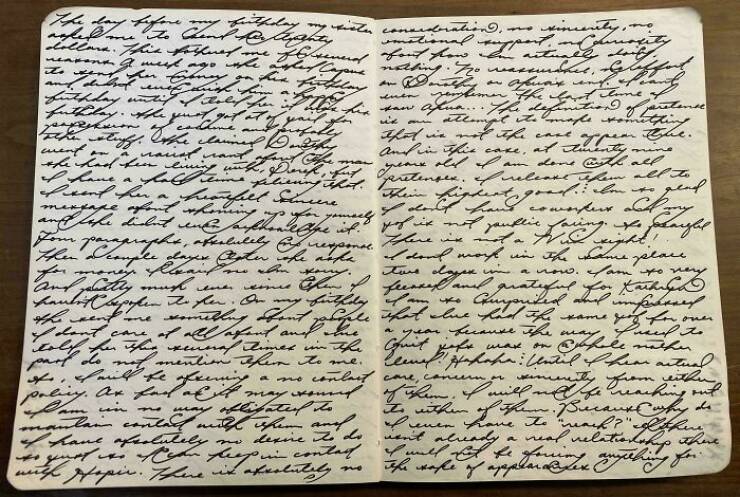 The day before my birthday my sister
asked me to send her twenty
dollars. This bothered me for several
reasons. A week ago she asked
to send her money on his birthday
and didn't even wish him a happy
birthday until I told her it was his
birthday. She just got out of jail for
possession of cocaine and
stuff. She claimed Dorothy
went on a racist rant about the man
she had been living with, Derek, but
I have a hard time believing that.
I sent her a heartfelt sincere
message about showing up for yourself
and she didn't even acknowledge it.
Four paragraphs, absolutely no response.
Then a couple days later she asks
for money. no I'm sorry.
And pretty much ever since then I
haven't spoken to her. On my birthday
she sent me something about people
I don't care at all about and I've
told her this several times in the
past do not mention them to me.
So, I will be officering a no contact
policy. As bad as it may sound
I am in no way obligated to
maintain contact with them and
I have absolutely no desire to do
so just so I can keep in contact
with . There is absolutely no
consideration, no sincerity, no
emotional support, no curiosity
about how I'm actually doing
nothing. No reassurance,
on
even remember the last time I
saw . The definition of pretense
is an attempt to make something
that is not the case appear true.
And in this case, at twenty nine
years old I am done with all
pretenses. I release them all to
their highest good. I'm so glad
I don't have coworkers and my
job is not public facing. So grateful
there is not a
I don't work in the same place
two days in a row. I am so very
blessed and grateful for
I am so surprised and impressed
that I've had the same job for over
a year because the way I used to
quit jobs was on a whole nother
level! Hahaha! Until I hear actual
care, concern or sincerity from either
of them, I will not be reaching out
to either of them. Because why do
I even have to "reach?" If there
isn't already a real relationship there
I will not be forcing anything for
the sake of appearances